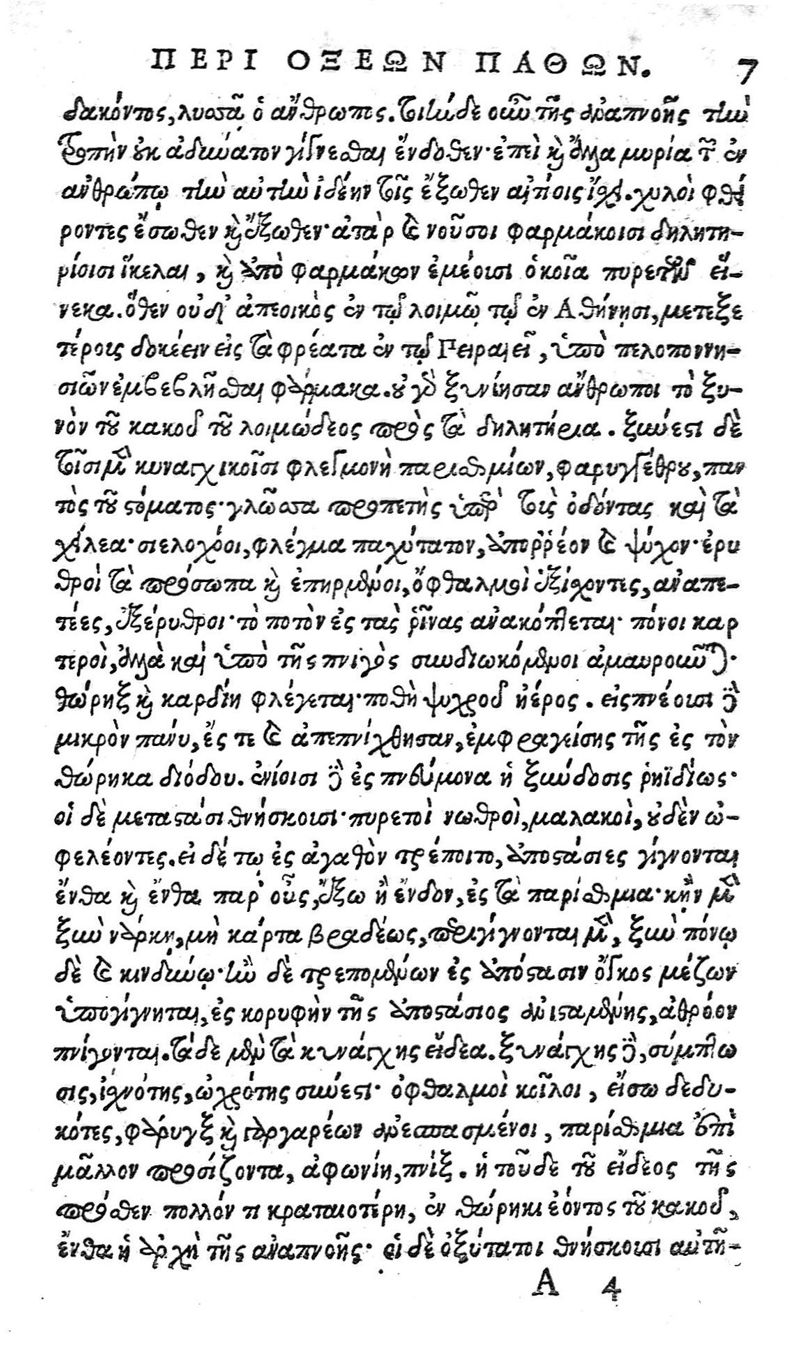 ΠΕΡΙ ΟΞΕΩΝ ΠΑΘΩΝ. 7
δακόντος, λυσσᾷ ὁ ἄνθρωπος. τιὼ δε οὖν τῆς ἀναπνοῆς τὴν
τροπὴν οὐκ ἀδύνατον γίγνεσθαι ἔνδοθεν· ἐπεὶ καὶ ἄλλα μυρία τῶν ἐν
ἀνθρώπῳ τὴν αὐτὴν ἰδέην τοῖς ἔξωθεν αἰτίοις ἴχει. χυλοὶ φθεί
ροντες ἔσωθεν καὶ ἔξωθεν· ἀτὰρ καὶ νοῦσοι φαρμάκοισι δηλητη-
ρίοισι ἴκελαι, καὶ ὑπὸ φαρμάκων ἐμέουσι ὁκοῖα πυρετῶν εἵ-
νεκα. ὅθεν οὐδ' ἀπεοικὸς ἐν τῷ λοιμῷ τῷ ἐν Ἀθήνησι, μετεξε
τέροις δοκέειν εἰς τὰ φρέατα ἐν τῷ Πειραιεῖ, ὑπὸ πελοποννη-
σίων ἐμβεβλῆσθαι φάρμακα. οὐ γὰρ ξυνίησαν ἄνθρωποι τὸ ξυ-
νὸν τοῦ κακοῦ τοῦ λοιμώδεος πρὸς τὰ δηλητήρια. ξύνεστι δὲ
τοῖσι μὲν κυναγχικοῖσι φλεγμονὴ παρισθμίων, φαρυγγέθρου, παν
τὸς τοῦ στόματος· γλῶσσα προπετὴς ὑπὲρ τοὺς ὀδόντας καὶ τὰ
χίλεα· σιελοχόοι, φλέγμα παχύτατον, ἀπορρέον καὶ ψύχον· ἐρυ
θροὶ τὰ πρόσωπα καὶ ἐπηρμένοι, ὀφθαλμοὶ ἐξίχοντες, ἀναπε-
τέες, ἐξέρυθροι· τὸ ποτὸν ἐς τὰς ῥῖνας ἀνακόπτεται· πόνοι καρ
τεροὶ, ἀλλὰ καὶ ὑπὸ τῆς πνιγὸς συνδιωκόμενοι ἀμαυροῦνται·
θώρηξ καὶ καρδίη φλέγεται· ποθὴ ψυχροῦ ἠέρος. εἰσπνέουσι δὲ
μικρὸν πάνυ, ἔς τε καὶ ἀπεπνίχθησαν, ἐμφραγείσης τῆς ἐς τὸν
θώρηκα διόδου. ἐνίοισι δὲ ἐς πνεύμονα ἡ ξύνδοσις ῥηϊδίως·
οἱ δὲ μεταστάσι θνήσκουσι· πυρετοὶ νωθροὶ, μαλακοὶ, οὐδὲν ὠ-
φελέοντες. εἰ δέ τῳ ἐς ἀγαθὸν τρέποιτο, ἀποστάσιες γίγνονται
ἔνθα καὶ ἔνθα παρ' οὖς, ἔξω ἢ ἔνδον, ἐς τὰ παρίσθμια· κἢν μὲν
ξὺν νάρκῃ, μὴ κάρτα βραδέως, περιγίγνονται μὲν, ξὺν πόνῳ
δὲ καὶ κινδύνῳ· ἢν δὲ τρεπομένων ἐς ἀπόστασιν ὄγκος μέζων
ὑπογίγνηται, ἐς κορυφὴν τῆς ἀποστάσιος ἀνισταμένης, ἀθρόον
πνίγονται. τάδε μὲν τὰ κυνάγχης εἴδεα. ξυνάγχης δὲ, σύμπτω
σις, ἰχνότης, ὠχρότης σύνεστι· ὀφθαλμοὶ κοῖλοι, εἴσω δεδυ-
κότες, φάρυγξ καὶ γαργαρέων ἀνεσπασμένοι, παρίσθμια ἐπὶ
μᾶλλον προσίζοντα, ἀφωνίη, πνίξ. ἡ τοῦδε τοῦ εἴδεος τῆς
πρόσθεν πολλόν τι κραταιοτέρη, ἐν θώρηκι ἐόντος τοῦ κακοῦ,
ἔνθα ἡ ἀρχὴ τῆς ἀναπνοῆς· οἱ δὲ ὀξύτατοι θνήσκουσι αὐτῆ-
A 4